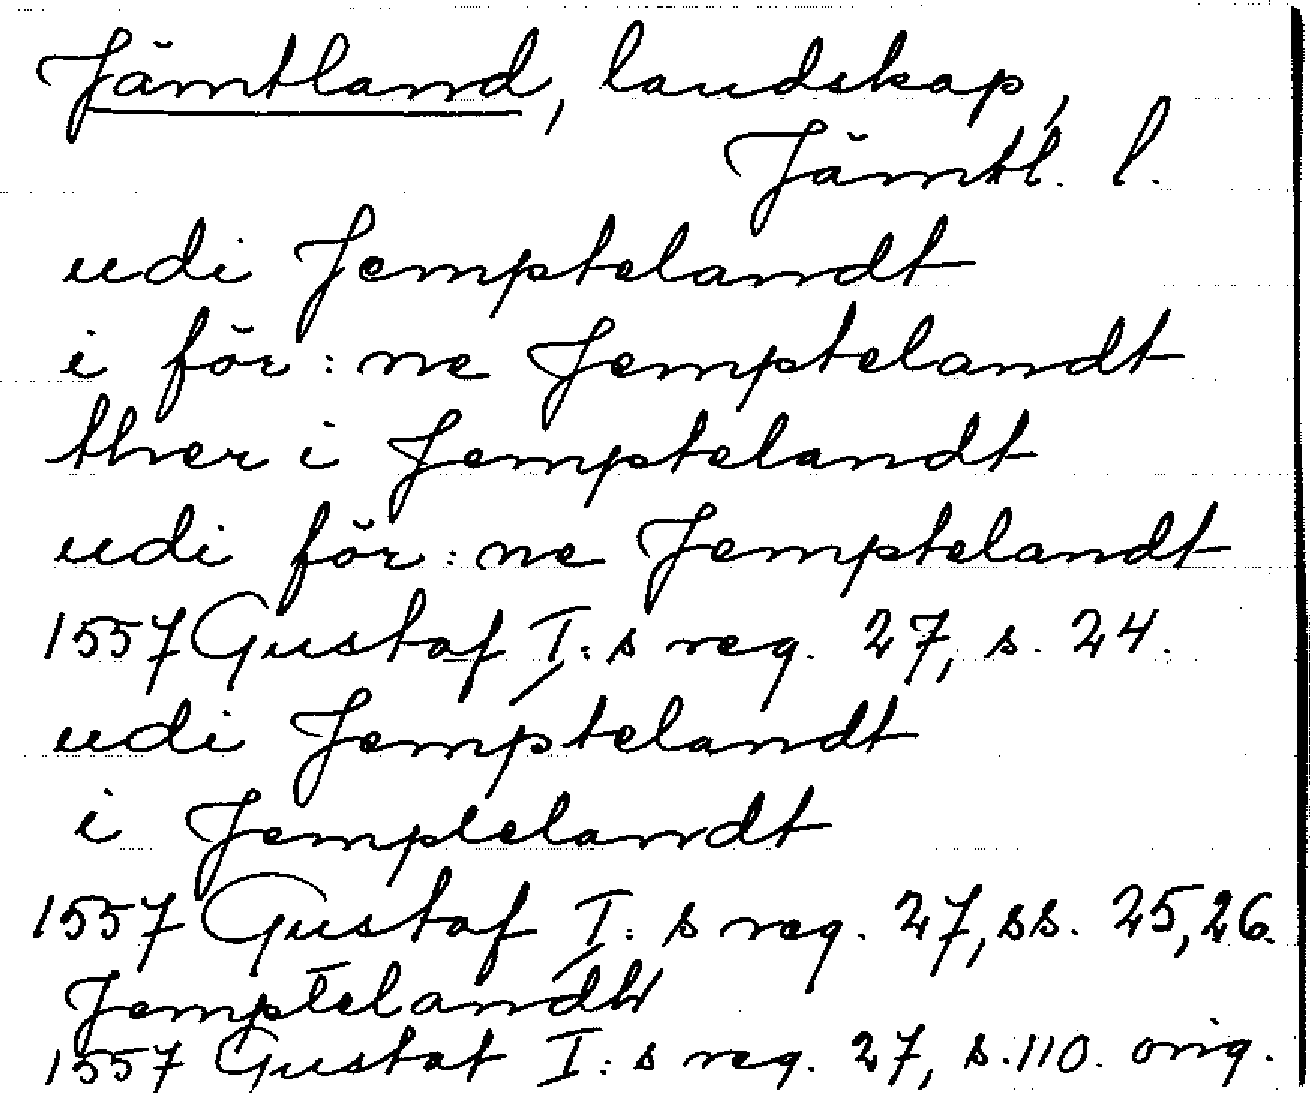 Jämtland, landskap,
Jämtl. l.
udi Jemptelandt
i för:ne Jemptelandt
ther i Jemptelandt
udi för:ne Jemptelandt
1557 Gustaf I:s reg. 27, s. 24.
udi Jemptelandt
i Jemptelandt
1557 Gustaf I:s reg. 27, ss. 25, 26.
1557 Gustaf I:s reg. 27, s. 110. orig.